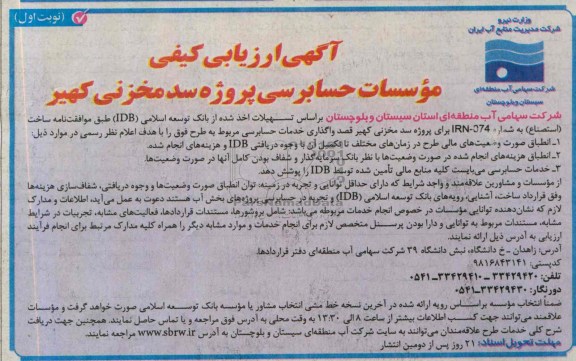 (نوبت اول)
وزارت نیرو
شرکت مدیریت منابع آب ایران
شرکت سهامی آب منطقه‌ای
سیستان و بلوچستان
آگهی ارزیابی کیفی
مؤسسات حسابرسی پروژه سد مخزنی کهیر
شرکت سهامی آب منطقه‌ای استان سیستان و بلوچستان براساس تسهیلات اخذ شده از بانک توسعه اسلامی (IDB) طبق موافقت‌نامه ساخت
(استصناع) به شماره IRN-074 برای پروژه سد مخزنی کهیر قصد واگذاری خدمات حسابرسی مربوط به طرح فوق را با هدف اعلام نظر رسمی در موارد ذیل:
۱ـ انطباق صورت وضعیت‌های مالی طرح در زمان‌های مختلف تا تکمیل آن با وجوه دریافتی IDB و هزینه‌های انجام شده.
۲ـ انطباق هزینه‌های انجام شده در صورت وضعیت‌ها با نظر بانک سرمایه‌گذار و شفاف بودن کامل آنها در صورت وضعیت‌ها.
۳ـ خدمات حسابرسی می‌بایست کلیه منابع مالی تأمین شده توسط IDB را پوشش دهد.
از مؤسسات و مشاورین علاقه‌مند و واجد شرایط که دارای حداقل توانایی و تجربه در زمینه: توان انطباق صورت وضعیت‌ها و وجوه دریافتی، شفاف‌سازی هزینه‌ها
وفق قرارداد ساخت، آشنایی رویه‌های بانک توسعه اسلامی (IDB) و تجربه در حسابرسی پروژه‌های بخش آب هستند دعوت به عمل می‌آید، اطلاعات و مدارک
لازم که نشان‌دهنده توانایی مؤسسات در خصوص انجام خدمات مربوطه می‌باشد، شامل بروشورها، مستندات قراردادها، فعالیت‌های مشابه، تجربیات در شرایط
مشابه، مستندات مربوط به توانایی و دارا بودن پرسنل متخصص لازم برای انجام خدمات و موارد مشابه دیگر را همراه کلیه مدارک مرتبط برای انجام فرآیند
ارزیابی به آدرس ذیل ارائه نمایند.
آدرس: زاهدان ـ خ دانشگاه، نبش دانشگاه ۳۹ شرکت سهامی آب منطقه‌ای دفتر قراردادها.
کدپستی: ۹۸۱۶۸۴۳۱۴۱
تلفن: ۳۳۴۲۹۴۲۰ ـ ۳۳۴۲۹۴۱۰ـ۰۵۴۱
دورنگار: ۳۳۴۲۹۴۳۰ـ۰۵۴۱
ضمناً انتخاب مؤسسه براساس رویه ارائه شده در آخرین نسخه خط مشی انتخاب مشاور یا مؤسسه بانک توسعه اسلامی صورت خواهد گرفت و مؤسسات
علاقمند می توانند جهت کسب اطلاعات بیشتر از ساعت ۸ الی ۱۳:۳۰ به وقت محلی به آدرس فوق مراجعه و یا تماس حاصل نمایند. همچنین جهت دریافت
شرح کلی خدمات طرح علاقه‌مندان می‌توانند به سایت شرکت آب منطقه‌ای سیستان و بلوچستان به آدرس www.sbrw.ir مراجعه نمایند.
مهلت تحویل اسناد: ۲۱ روز پس از دومین انتشار